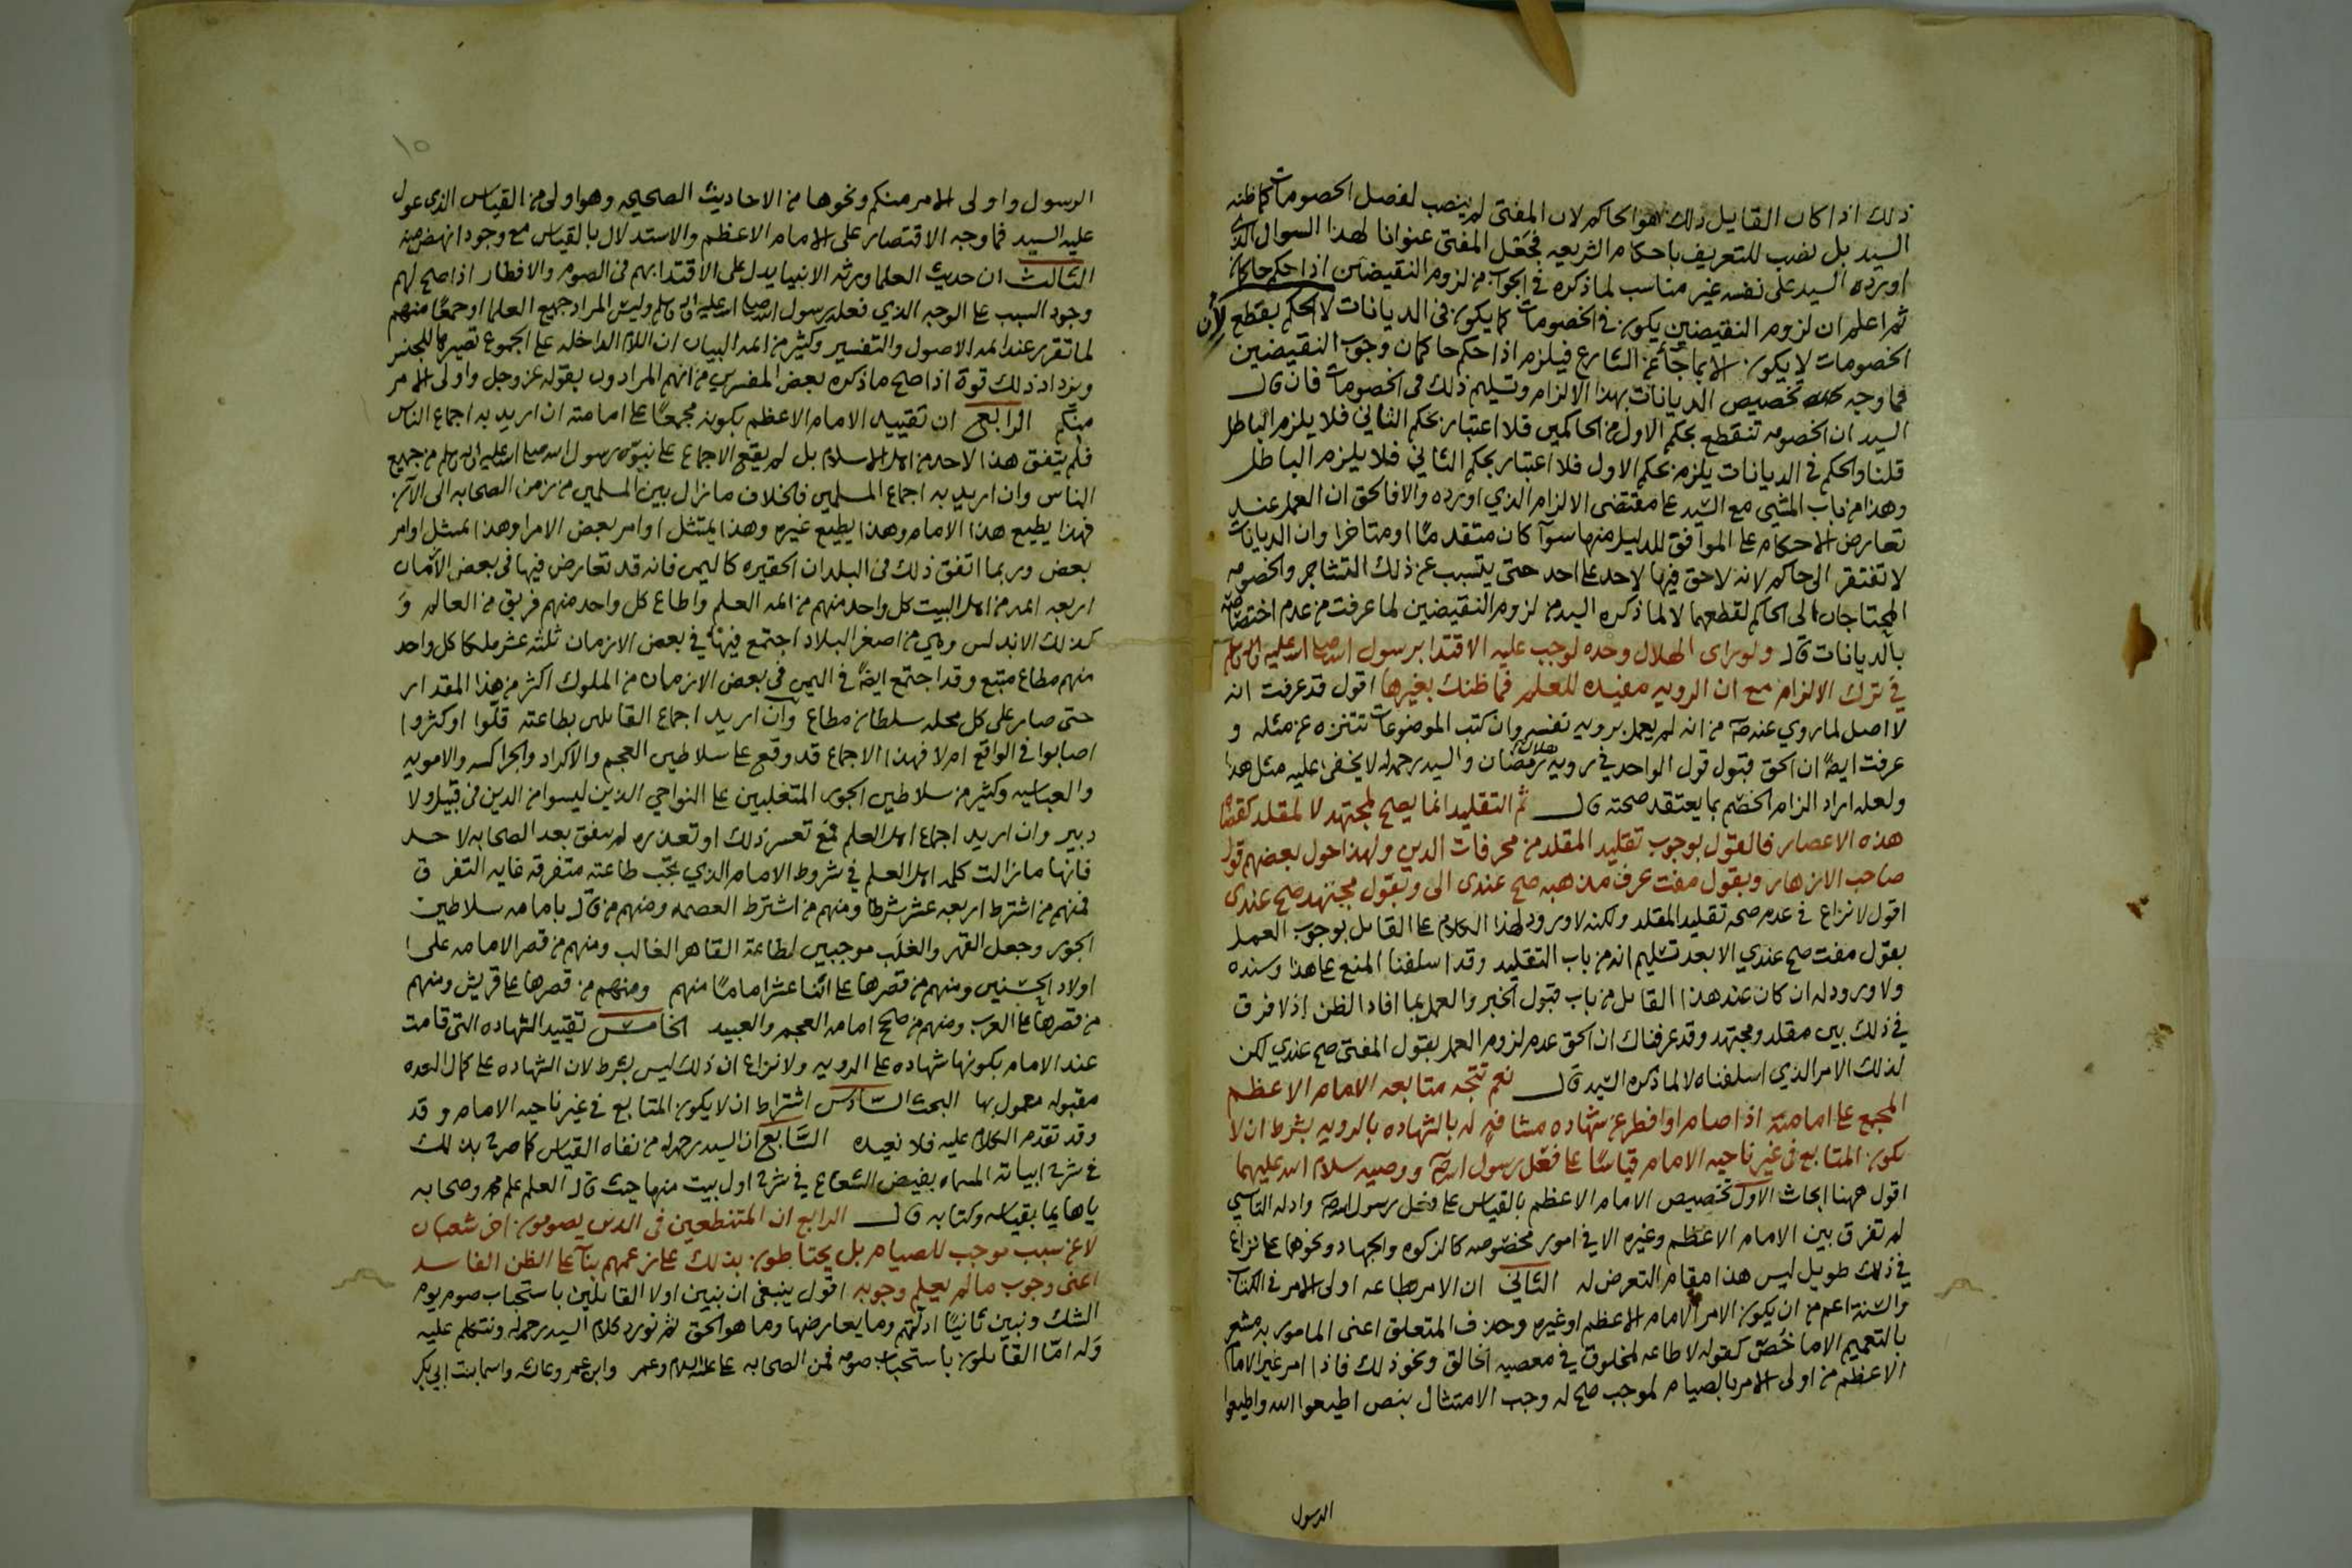 ذلك اذا كان القايل ذلك هو الحاكم لان المفتي لم ينصب لفصل الخصومات كما ظنه
السيد بل نصب للتعريف باحكام الشريعه فجعل المفتي عنوانا لهذا السوال الذي
اورده السيد على نفسه غير مناسب لما ذكره في الجواب من لزوم النقيضين اذا حكم حاكمان
ثم اعلم ان لزوم النقيضين يكون في الخصومات كما يكون في الديانات لا الحكم بقطع لأن
الخصومات لا يكون الا بما جآ عن الشارع فيلزم اذا حكم حاكمان وجوب النقيضين
فما وجه تخصيص الديانات بهذا الالزام وتسليم ذلك في الخصومات فان قال
السيد ان الخصومه تنقطع بحكم الاول من الحاكمين فلا اعتبار بحكم الثاني فلا يلزم الباطل
قلنا والحكم في الديانات يلزم بحكم الاول فلا اعتبار بحكم الثاني فلا يلزم الباطل
وهذا من باب المشي مع السيد على مقتضى الالزام الذي اورده والا فالحق ان العمل عند
تعارض الاحكام على الموافق للدليل منها سوآ كان متقدمًا او متاخرا وان الديانات
لا تفتقر الى حاكم لانه لا حق فيها لاحد على احد حتى يتسبب عن ذلك التشاجر والخصومه
المحتاجان الى الحاكم لقطعهما لا لما ذكره السيد من لزوم النقيضين لما عرفت من عدم اختصاصه
بالديانات قال ولو راى الهلال وحده لوجب عليه الاقتدا برسول الله صلى الله عليه واله وسلم
في ترك الالزام مع ان الرويه مفيده للعلم فما ظنك بغيرها اقول قد عرفت انه
لا اصل لما روي عنه صلم من انه لم يعمل برويه نفسه وان كتب الموضوعات تتنزه عن مثله و
عرفت ايضًا ان الحق قبول قول الواحد في رويه هلال رمضان والسيد رحمه الله لا يخفى عليه مثل هذا
ولعله اراد الزام الخصم بما يعتقد صحته قال ثم التقليد انما يصح لمجتهد لا لمقلد كقضاة
هذه الاعصار فالقول بوجوب تقليد المقلد من محرفات الدين ولهذا حول بعضهم قول
صاحب الازهار وبقول مفت عرف مذهبه صح عندي الى وبقول مجتهد صح عندي
اقول لا نزاع في عدم صحه تقليد المقلد ولكنه لا ورود لهذا الكلام على القايل بوجوب العمل
بقول مفت صح عندي الا بعد تسليم انه من باب التقليد وقد اسلفنا المنع على هذا وسنده
ولا ورود له ان كان عند هذا القايل من باب قبول الخبر والعمل بما افاد الظن اذ لا فرق
في ذلك بين مقلد ومجتهد وقد عرفناك ان الحق عدم لزوم العمل بقول المفتي صح عندي لكن
لذلك الامر الذي اسلفناه لا لما ذكره السيد قال نعم تتجه متابعه الامام الاعظم
المجمع على امامته اذا صام او افطر عن شهاده مشافه له بالشهاده بالرويه بشرط ان لا
يكون المتابع في غير ناحيه الامام قياسًا على فعل رسول الله صلم ووصيه سلام الله عليهما
اقول ههنا ابحاث الاول تخصيص الامام الاعظم بالقياس على فعل رسول الله صلم وادله التاسي
لم تفرق بين الامام الاعظم وغيره الا في امور مخصوصه كالزكوه والجهاد ونحوهما على نزاع
في ذلك طويل ليس هذا مقام التعرض له الثاني ان الامر بطاعه اولى الامر في الكتاب
والسنة اعم من ان يكون الامر الامام الاعظم او غيره وحذف المتعلق اعني المامور به مشعر
بالتعميم الا ما خص كقوله لا طاعه لمخلوق في معصيه الخالق ونحو ذلك فاذا امر غير الامام
الاعظم من اولى الامر بالصيام لموجب صح له وجب الامتثال بنص اطيعوا الله واطيعوا
الرسول
١٥
الرسول واولى الامر منكم ونحوها من الاحاديث الصحيحه وهو اولى من القياس الذي عول
عليه السيد فما وجه الاقتصار على الامام الاعظم والاستدلال بالقياس مع وجود انهض منه
الثالث ان حديث العلما ورثه الانبيا يدل على الاقتدا بهم في الصوم والافطار اذا صح لهم
وجود السبب على الوجه الذي فعله رسول الله صلى الله عليه واله وسلم وليس المراد جميع العلما او جمعًا منهم
لما تقرر عند ايمه الاصول والتفسير وكثير من ايمه البيان ان اللام الداخله على الجموع تصيرها للجنس
ويزداد ذلك قوة اذا صح ما ذكره بعض المفسرين من انهم المرادون بقوله عز وجل واولى الامر
منكم الرابع ان تقييد الامام الاعظم بكونه مجمعًا على امامته ان اريد به اجماع الناس
فلم يتفق هذا لاحد من اهل الاسلام بل لم يقع الاجماع على نبوة رسول الله صلى الله عليه واله وسلم من جميع
الناس وان اريد به اجماع المسلمين فالخلاف ما زال بين المسلمين من زمن الصحابه الى الآن
فهذا يطيع هذا الامام وهذا يطيع غيره وهذا يمتثل اوامر بعض الامرا وهذا يمتثل اوامر
بعض وربما اتفق ذلك في البلدان الحقيره كاليمن فانه قد تعارض فيها في بعض الأزمان
اربعه ايمه من اهل البيت كل واحد منهم من ايمه العلم واطاع كل واحد منهم فريق من العالم و
كذلك الاندلس وهي من اصغر البلاد اجتمع فيها في بعض الازمان ثلثه عشر ملكا كل واحد
منهم مطاع متبع وقد اجتمع ايضًا في اليمن في بعض الازمان من الملوك اكثر من هذا المقدار
حتى صار على كل محله سلطان مطاع وان اريد اجماع القايلين بطاعته قلّوا او كثروا
اصابوا في الواقع ام لا فهذا الاجماع قد وقع على سلاطين العجم والاكراد والجراكسه والامويه
والعباسيه وكثير من سلاطين الجور المتغلبين على النواحي الذين ليسوا من الدين في قبيل ولا
دبير وان اريد اجماع اهل العلم فمع تعسر ذلك او تعذره لم يتفق بعد الصحابه لاحد
فانها ما زالت كلمه اهل العلم في شروط الامام الذي تجب طاعته متفرقه غايه التفرق
فمنهم من اشترط اربعه عشر شرطا ومنهم من اشترط العصمه ومنهم من قال بامامه سلاطين
الجور وجعل القهر والغلب موجبين لطاعة القاهر الغالب ومنهم من قصر الامامه على
اولاد الحسنين ومنهم من قصرها على اثنا عشر امامًا منهم ومنهم من قصرها على قريش ومنهم
من قصرها على العرب ومنهم من صلح امامه العجم والعبيد الخامس تقييد الشهاده التي قامت
عند الامام بكونها شهاده على الرويه ولا نزاع ان ذلك ليس بشرط لان الشهاده على كمال العده
مقبوله معمول بها البحث السّادس اشتراط ان لا يكون المتابع في غير ناحيه الامام وقد
وقد تقدم الكلام عليه فلا نعيده السّابع ان السيد رحمه الله من نفاه القياس كما صرح بذلك
في شرح ابياته المسماه بفيض الشعاع في شرح اول بيت منها حيث قال العلم علم محمد وصحابه
يا هايما بقياسه وكتابه قال الرابع ان المتنطعين في الدين يصومون اخر شعبان
لا عن سبب موجب للصيام بل يحتاطون بذلك على زعمهم بنآ على الظن الفاسد
اعني وجوب ما لم يعلم وجوبه اقول ينبغي ان نبين اولا القايلين باستحباب صوم يوم
الشك ونبين ثانيًا ادلتهم وما يعارضها وما هو الحق ثم نورد كلام السيد رحمه الله ونتكلم عليه
وله امّا القايلون باستحباب صومه فمن الصحابه علي عليه السلام وعمر وابن عمر وعائشه واسما بنت ابي بكر